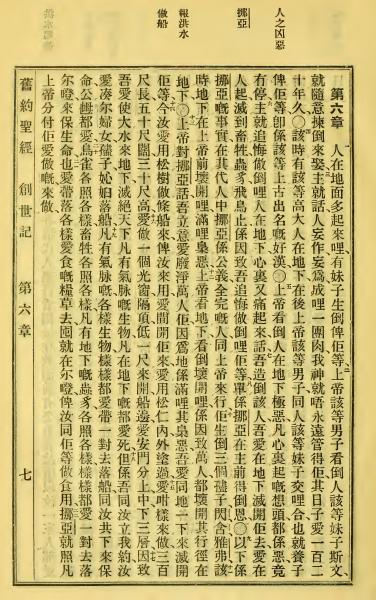 人之凶惡
挪亞
報洪水
做船
第六章 人在地面多起來哩有妹子生倒俾佢等上帝該等男子看倒人該等妹子斯文
就隨意揀倒來娶主就話人妄作妄為成哩一團肉我神就唔永遠管得佢其日子愛一百二
十年久〇該時有該等高大人在地下在後上帝該等男子同人該等妹子交哩合也就養子
俾佢等卽係該等上古出名嘅好漢〇上帝看倒人在地下極惡凡心裏起嘅想頭都係惡竟
有停主就追悔做倒哩人在地下心裏又痛起來話吾造倒該人吾愛在地下滅開佢去愛在
人起滅到畜牲蟲豸飛鳥止係因致吾追悔做倒哩佢等單係挪亞在主前得倒恩〇以下係
挪亞嘅事實在其代人中挪亞係公義全完嘅人同上帝來行佢生倒三個子閃含雅弗該
時地下在上帝前壞開哩滿哩梟惡上帝看地下看倒壞開哩係因致萬人都壞開其行徑在
地下〇上帝對挪亞話吾立意愛廢淨萬人佢因為地係滿哩其梟惡吾愛同地一下來滅開
佢等今汝愛用松樹做條船來俾汝來用愛間開佢來愛用松仁內外塗過愛咁樣來做三百
尺長五十尺闊三十尺高愛做一個光窗隔項低一尺來開船邊愛安門分上中下三層因致
吾愛使大水來地下滅絕天下凡有氣脉嘅生物凡在地下嘅都愛死但係吾同汝立我約汝
愛湊尔婦女子媳婦落船凡有氣脉嘅各樣生物樣樣都愛帶一對去落船同汝共下來保
命公都愛鳥雀各照各樣畜牲各照各樣凡有地下嘅蟲豸各照各樣樣樣都愛一對去落
尔噔來保生命也愛帶落各樣愛食嘅糧草去囤就在尔噔俾汝同佢等做食用挪亞就照凡
上帝分付佢愛做嘅來做
舊約聖經 創世記 第六章 七